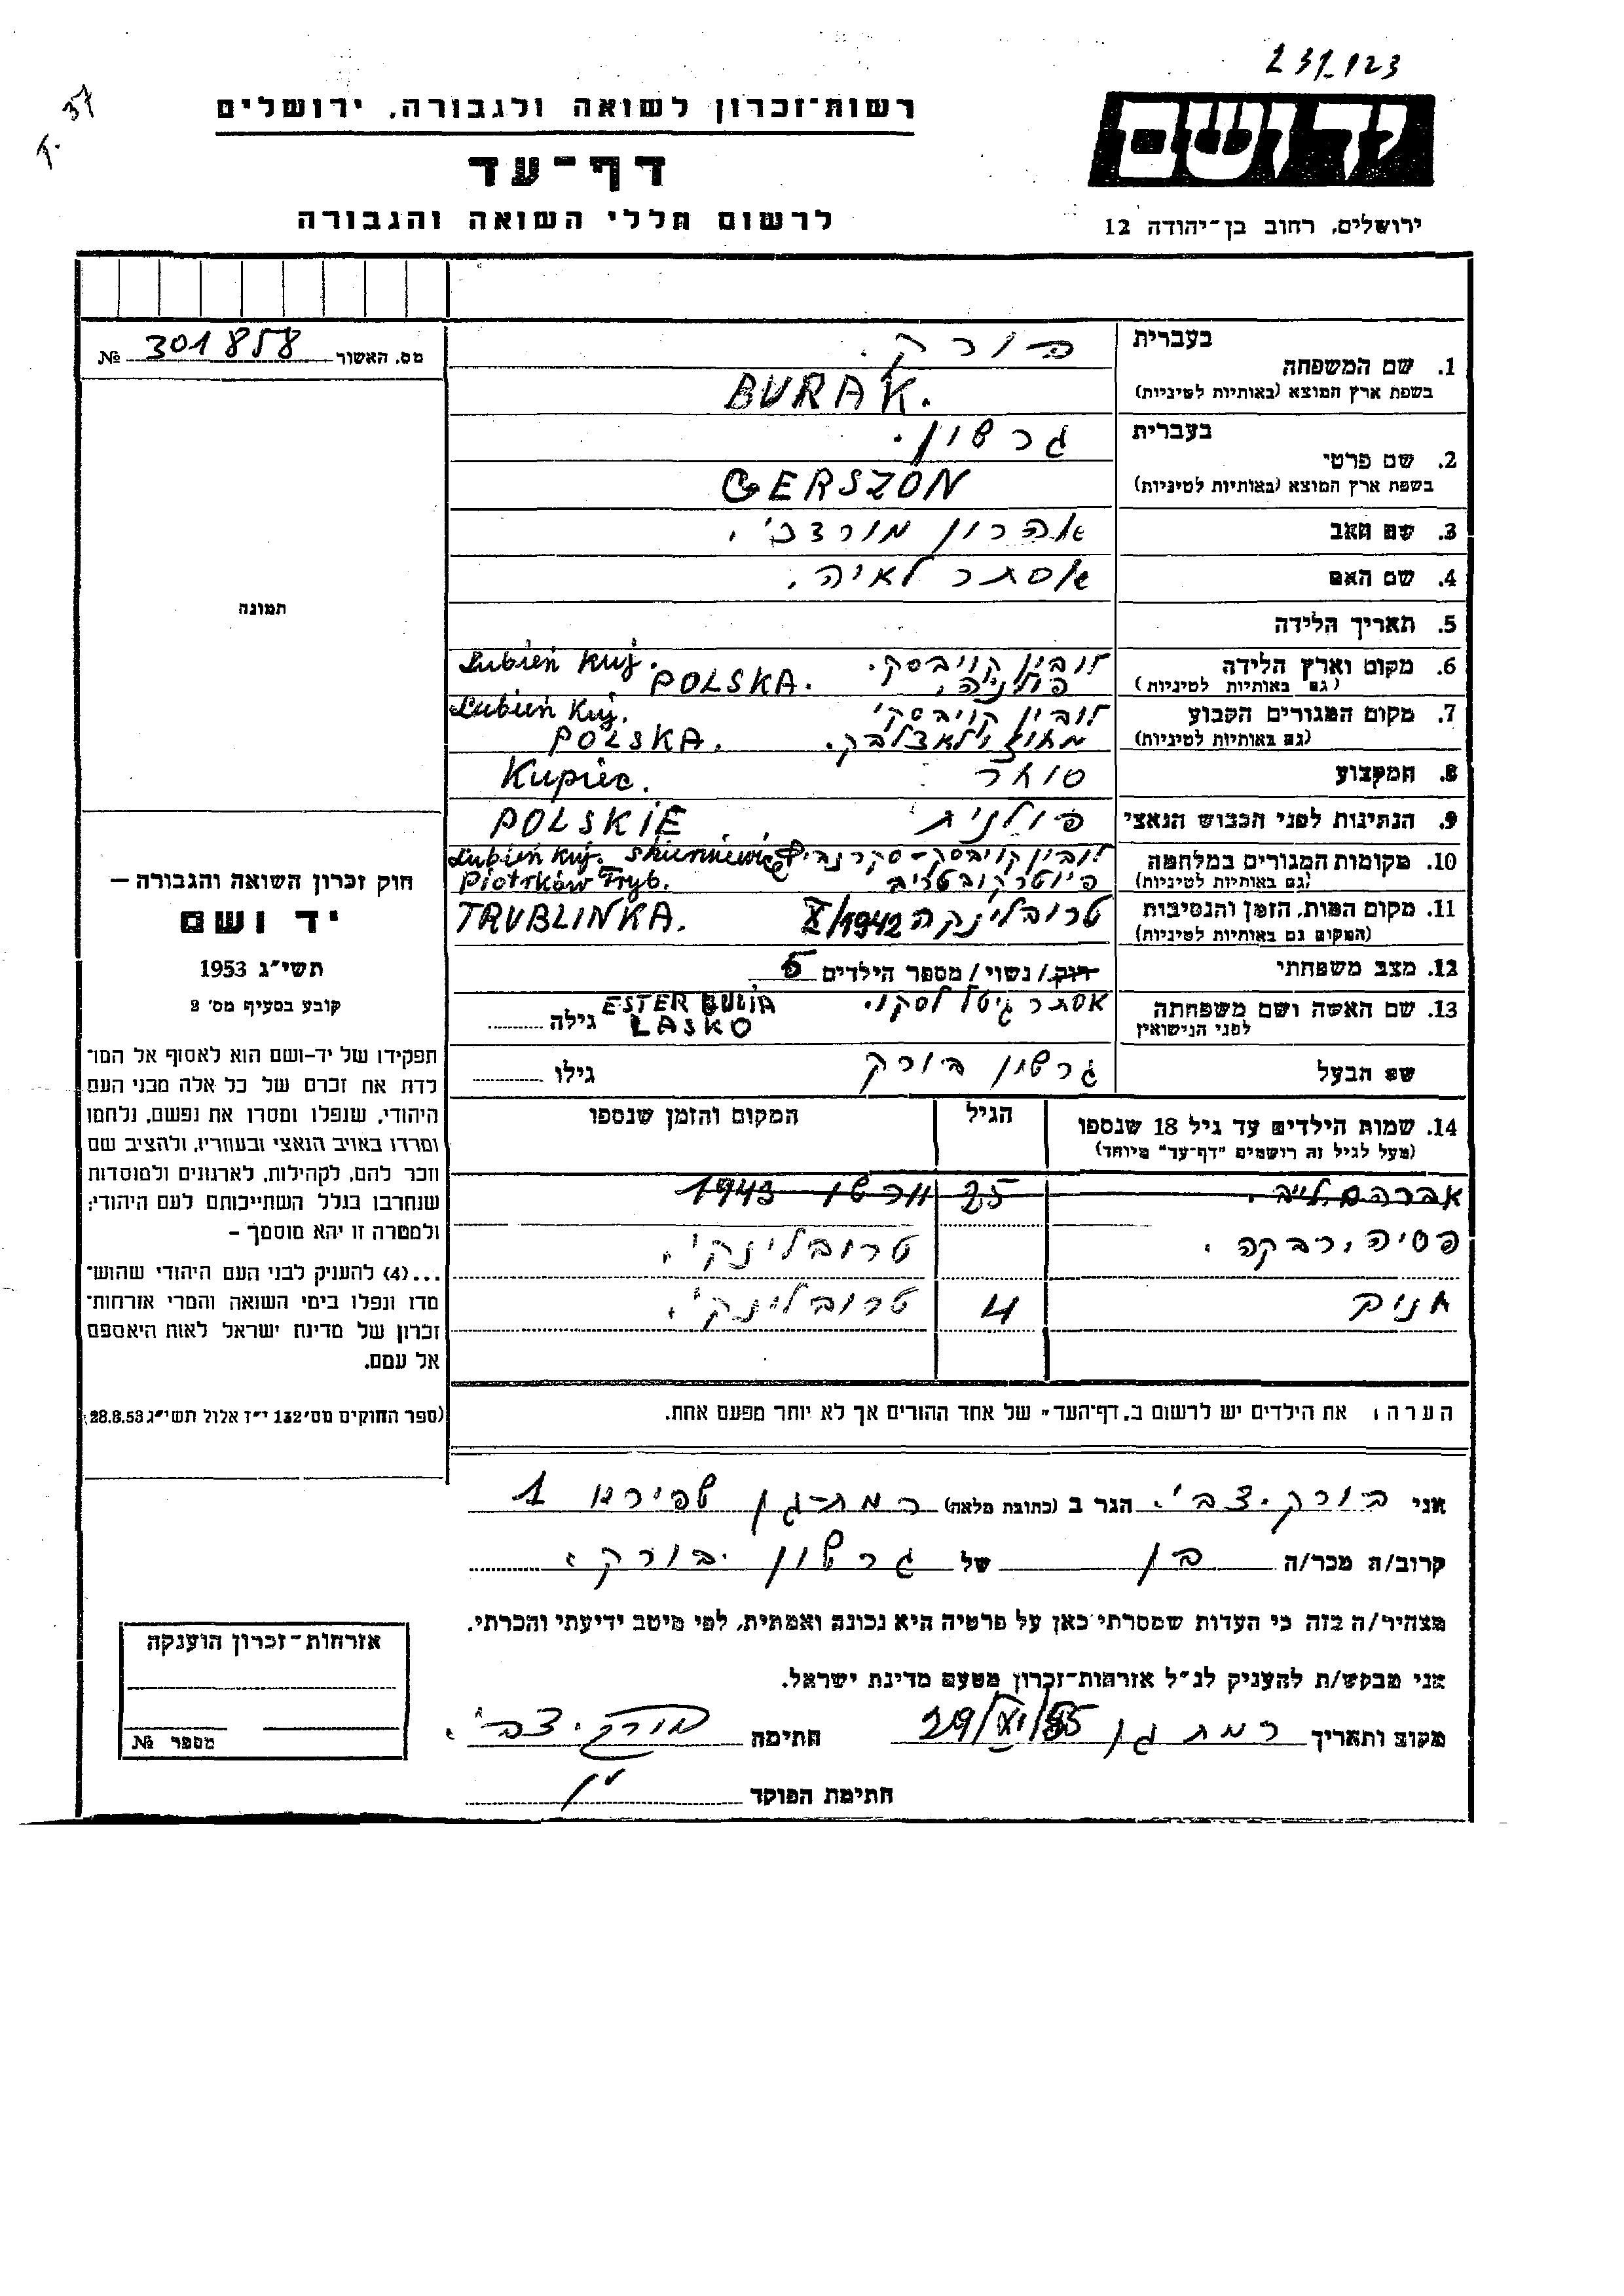 231.123
T. 37
רשות־זכרון לשואה ולגבורה, ירושלים
דף־עד
לרשום חללי השואה והגבורה
יד ושם
ירושלים, רחוב בן־יהודה 12
מס. האשור 301858 №
בעברית בורק.
1. שם המשפחה
בשפת ארץ המוצא (באותיות לטיניות) BURAK.
בעברית גרשון.
2. שם פרטי
בשפת ארץ המוצא (באותיות לטיניות) GERSZON
3. שם האב אהרון מורדכי.
4. שם האם אסתר לאיה.
5. תאריך הלידה
6. מקום וארץ הלידה לובין קויבסק. Lubień Kuj.
(גם באותיות לטיניות) פולניה. POLSKA.
7. מקום המגורים הקבוע לובין קויבסקי Lubień Kuj.
(גם באותיות לטיניות) מחוז POLSKA.
8. המקצוע סוחר Kupiec.
9. הנתינות לפני הכבוש הנאצי פולנית POLSKIE
10. מקומות המגורים במלחמה לובין קויבסק- Lubień Kuj.
(גם באותיות לטיניות) Piotrków Tryb.
11. מקום המות, הזמן והנסיבות טרובלינקה X/1942 TRUBLINKA.
(המקום גם באותיות לטיניות)
12. מצב משפחתי רוק/נשוי/מספר הילדים 5
13. שם האשה ושם משפחתה אסתר גיטל לסקו. ESTER
לפני הנישואין LASKO גילה
שם הבעל גרשון בורק גילו
14. שמות הילדים עד גיל 18 שנספו הגיל המקום והזמן שנספו
(מעל לגיל זה רושמים "דף־עד" מיוחד)
אברהם לייב. 25 וורשו 1943
פסיה, רבקה. טרובלינקי.
4 טרובלינקי.
הערה: את הילדים יש לרשום ב"דף־העד" של אחד ההורים אך לא יותר מפעם אחת.
תמונה
חוק זכרון השואה והגבורה —
יד ושם
תשי"ג 1953
קובע בסעיף מס' 2
תפקידו של יד-ושם הוא לאסוף אל המו־
לדת את זכרם של כל אלה מבני העם
היהודי, שנפלו ומסרו את נפשם, נלחמו
ומרדו באויב הנאצי ובעוזריו, ולהציב שם
וזכר להם, לקהילות, לארגונים ולמוסדות
שנחרבו בגלל השתייכותם לעם היהודי;
ולמטרה זו יהא מוסמך –
...(4) להעניק לבני העם היהודי שהוש־
מדו ונפלו בימי השואה והמרי אזרחות־
זכרון של מדינת ישראל לאות היאספם
אל עמם.
(ספר החוקים מס' 132 י"ז אלול תשי"ג 28.8.53)
אני בורק. צבי. הגר ב (כתובת מלאה) רמת-גן שפירא 1
קרוב/ה מכר/ה בן של גרשון בורק.
מצהיר/ה בזה כי העדות שמסרתי כאן על פרטיה היא נכונה ואמתית, לפי מיטב ידיעתי והכרתי.
אני מבקש/ת להעניק לנ"ל אזרחות־זכרון מטעם מדינת ישראל.
מקום ותאריך רמת גן 29/XI/55 חתימה בורק. צבי.
חתימת הפוקד
אזרחות־זכרון הוענקה
מספר №